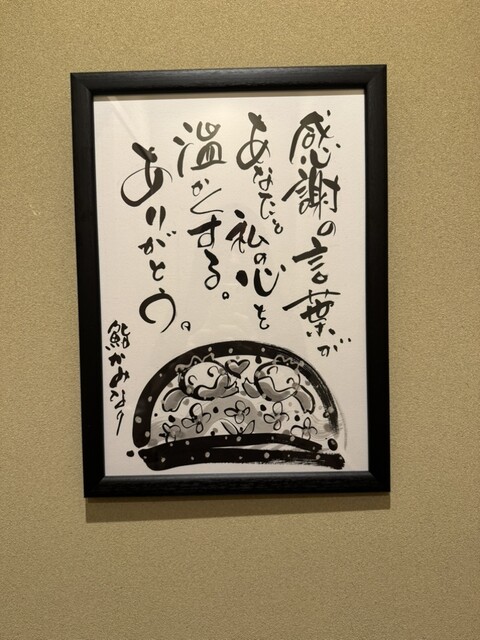 感謝の言葉が
あなたと私の心を
温かくする。
ありがとう。
鮨かみなり